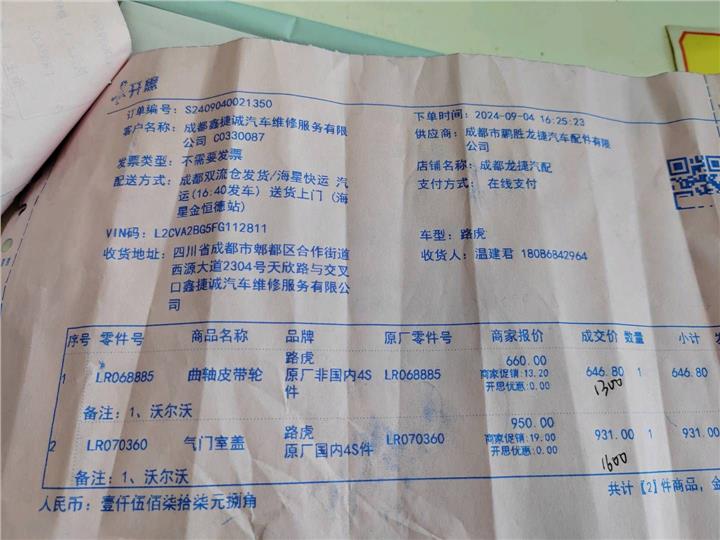 开思
订单编号: S2409040021350
下单时间: 2024-09-04 16:25:23
客户名称: 成都鑫捷诚汽车维修服务有限
公司 C0330087
供应商: 成都市鹏胜龙捷汽车配件有限
公司
发票类型: 不需要发票
店铺名称: 成都龙捷汽配
配送方式: 成都双流仓发货/海星快运 汽
运(16:40发车) 送货上门 (海
星金恒德站)
支付方式: 在线支付
VIN码: L2CVA2BG5FG112811
车型: 路虎
收货地址: 四川省成都市郫都区合作街道
西源大道2304号天欣路与交叉
口鑫捷诚汽车维修服务有限公
司
收货人: 温建君 18086842964
序号 零件号 商品名称 品牌 原厂零件号 商家报价 成交价 数量 小计
1 LR068885 曲轴皮带轮 路虎 原厂非国内4S件 LR068885 660.00 商家促销:13.20 开思优惠:0.00 646.80 1 646.80
1300
备注: 1、沃尔沃
2 LR070360 气门室盖 路虎 原厂国内4S件 LR070360 950.00 商家促销:19.00 开思优惠:0.00 931.00 1 931.00
1600
备注: 1、沃尔沃
共计【2】件商品, 金
人民币: 壹仟伍佰柒拾柒元捌角